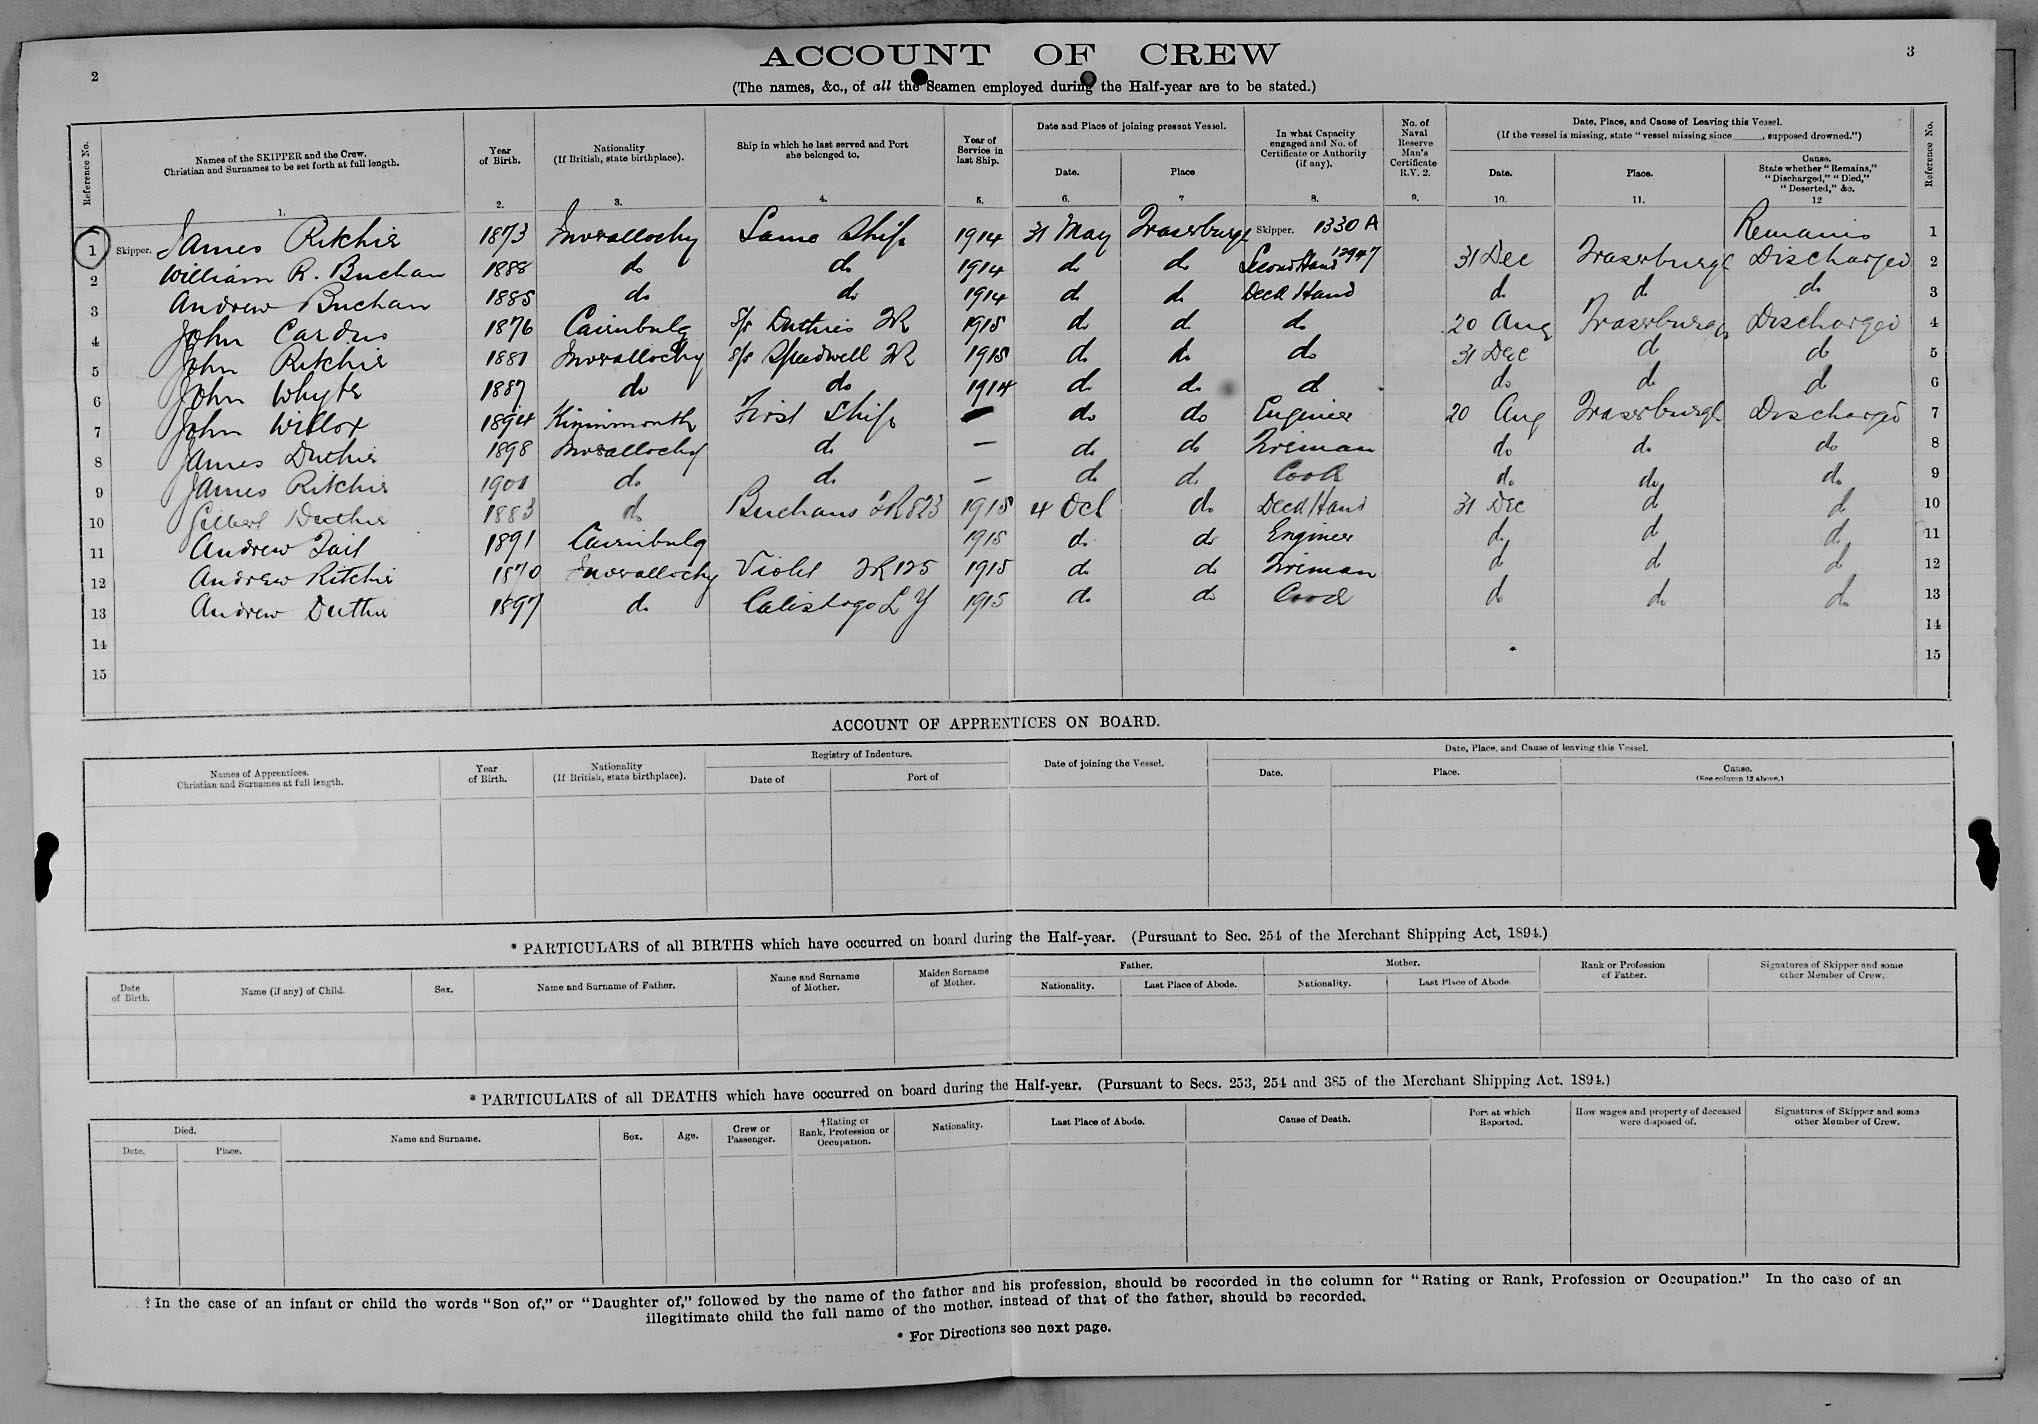 2
ACCOUNT OF CREW
3
(The names, &c., of all the Seamen employed during the Half-year are to be stated.)
Reference No. | Names of the SKIPPER and the Crew. Christian and Surnames to be set forth at full length. | Year of Birth. | Nationality (If British, state birthplace). | Ship in which he last served and Port she belonged to. | Year of Service in last Ship. | Date and Place of joining present Vessel. | In what Capacity engaged and No. of Certificate or Authority (if any). | No. of Naval Reserve Man's Certificate R.V. 2. | Date, Place, and Cause of Leaving this Vessel. (If the vessel is missing, state "vessel missing since ____, supposed drowned.") | Reference No.
Date. | Place | Date. | Place. | Cause. State whether "Remains," "Discharged," "Died," "Deserted," &c.
1. 2. 3. 4. 5. 6. 7 8. 9. 10. 11. 12
1 Skipper. James Ritchie 1873 Inverallochy Same Ship 1914 31 May Fraserburgh Skipper. 1330 A Remains 1
2 William R. Buchan 1888 do do 1914 do do Second Hand 12947 31 Dec Fraserburgh Discharged 2
3 Andrew Buchan 1885 do do 1914 d d Deck Hand d d do 3
4 John Cardno 1876 Cairnbulg S/s Duthies FR 1915 d d do 20 Aug Fraserburgh Discharged 4
5 John Ritchie 1881 Inverallochy S/s Speedwell FR 1915 do do do 31 Dec d do 5
6 John Whyte 1887 do do 1914 d do d do d d 6
7 John Willox 1894 Kininmonth First Ship — do do Engineer 20 Aug Fraserburgh Discharged 7
8 James Duthie 1898 Inverallochy do — do do Fireman do do do 8
9 James Ritchie 1901 do do — do d Cook do do do 9
10 Gilbert Duthie 1883 do Buchans FR 823 1915 4 Oct do Deck Hand 31 Dec d d 10
11 Andrew Tait 1891 Cairnbulg 1915 d do Engineer d d d 11
12 Andrew Ritchie 1870 Inverallochy Violet FR 125 1915 do do Fireman d d d 12
13 Andrew Duthie 1897 do Calistoga LY 1915 do do Cook do do do 13
14 14
15 15
ACCOUNT OF APPRENTICES ON BOARD.
Names of Apprentices. Christian and Surnames at full length. | Year of Birth. | Nationality (If British, state birthplace). | Registry of Indenture. | Date of joining the Vessel. | Date, Place, and Cause of leaving this Vessel.
Date of | Port of | Date. | Place. | Cause. (See column 12 above.)
* PARTICULARS of all BIRTHS which have occurred on board during the Half-year. (Pursuant to Sec. 254 of the Merchant Shipping Act, 1894.)
Date of Birth. | Name (if any) of Child. | Sex. | Name and Surname of Father. | Name and Surname of Mother. | Maiden Surname of Mother. | Father. | Mother. | Rank or Profession of Father. | Signatures of Skipper and some other Member of Crew.
Nationality. | Last Place of Abode. | Nationality. | Last Place of Abode.
* PARTICULARS of all DEATHS which have occurred on board during the Half-year. (Pursuant to Secs. 253, 254 and 385 of the Merchant Shipping Act. 1894.)
Died. | Name and Surname. | Sex. | Age. | Crew or Passenger. | †Rating or Rank, Profession or Occupation. | Nationality. | Last Place of Abode. | Cause of Death. | Port at which Reported. | How wages and property of deceased were disposed of. | Signatures of Skipper and some other Member of Crew.
Date. | Place.
†In the case of an infant or child the words "Son of," or "Daughter of," followed by the name of the father and his profession, should be recorded in the column for "Rating or Rank, Profession or Occupation." In the case of an
illegitimate child the full name of the mother, instead of that of the father, should be recorded.
* For Directions see next page.